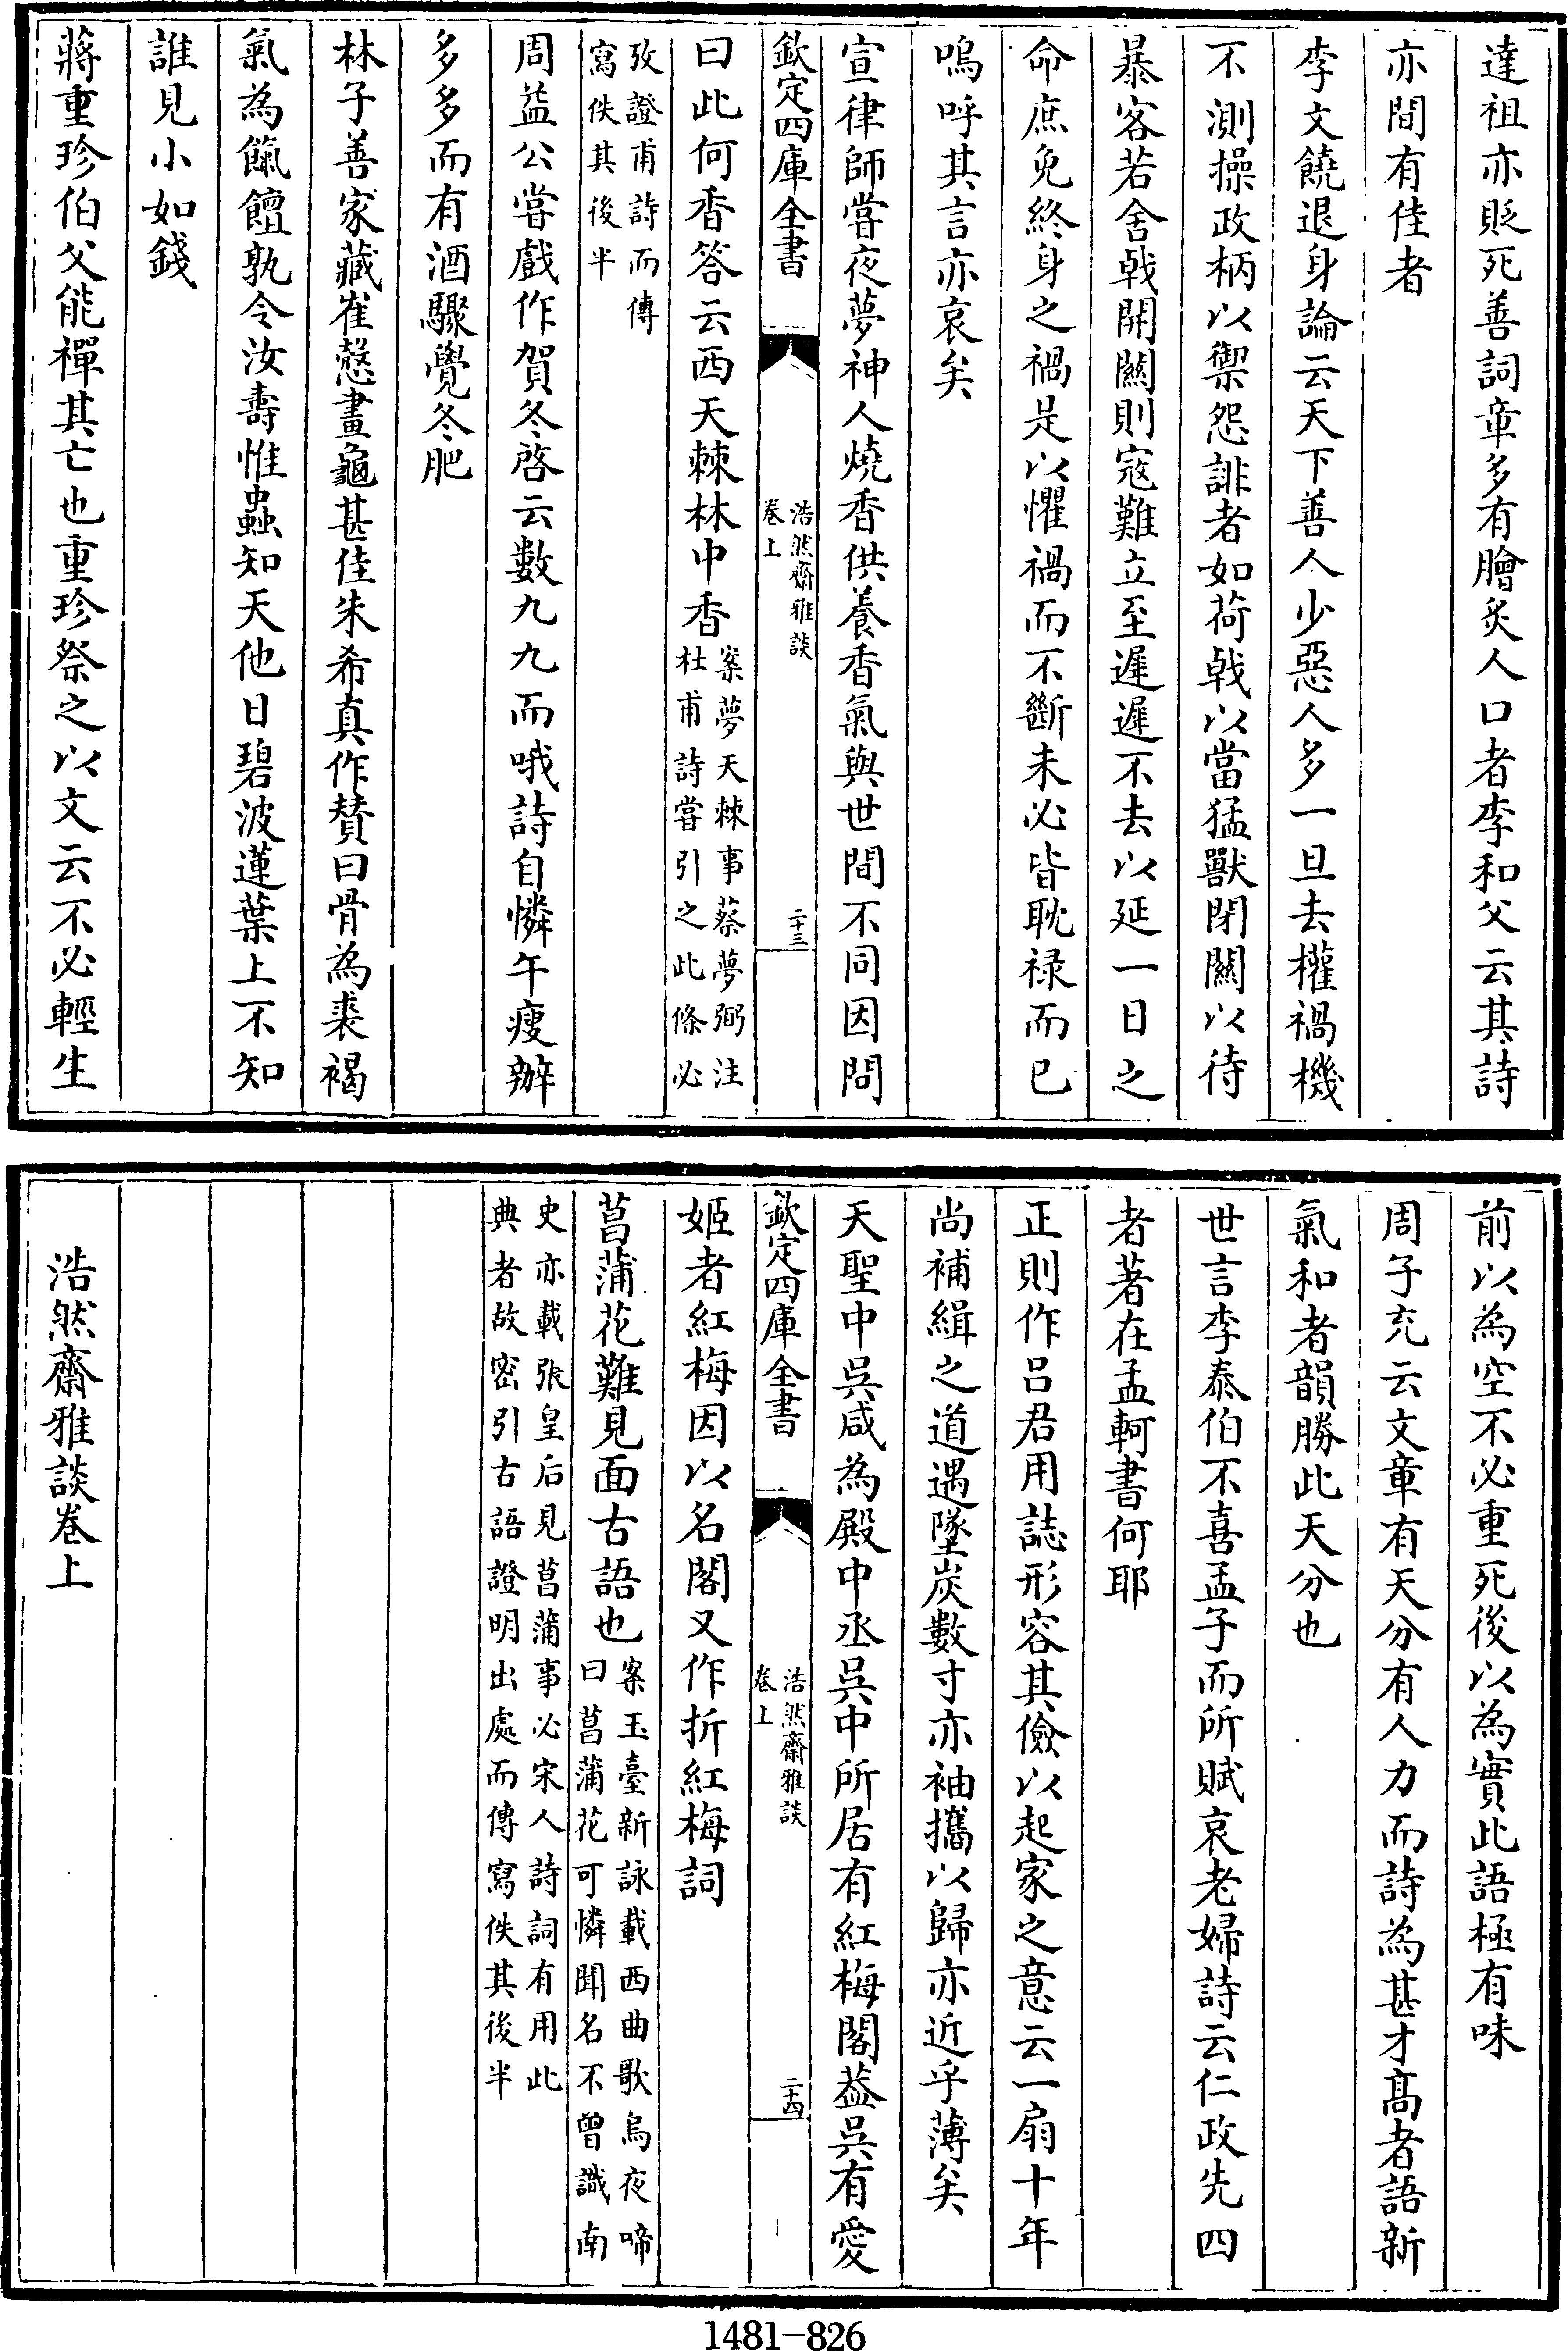 達祖亦貶死善詞章多有膾炙人口者李和父云其詩
亦間有佳者
李文饒退身論云天下善人少惡人多一旦去權禍機
不測操政柄以禦怨誹者如荷戟以當猛獸閉關以待
暴客若舍戟開關則寇難立至遲遲不去以延一日之
命庶免終身之禍是以懼禍而不斷未必皆耽禄而已
嗚呼其言亦哀矣
宣律師嘗夜夢神人燒香供養香氣與世間不同因問
欽定四庫全書
浩然齋雅談
卷上
二十三
曰此何香答云西天棘林中香案夢天棘事蔡夢弼注
杜甫詩嘗引之此條必
攷證甫詩而傳
寫佚其後半
周益公嘗戲作賀冬啓云數九九而哦詩自憐午瘦辦
多多而有酒驟覺冬肥
林子善家藏崔慤畫龜甚佳朱希真作賛曰骨為裘褐
氣為餼饘孰令汝壽惟蟲知天他日碧波蓮葉上不知
誰見小如錢
蔣重珍伯父能禪其亡也重珍祭之以文云不必輕生
前以為空不必重死後以為實此語極有味
周子充云文章有天分有人力而詩為甚才髙者語新
氣和者韻勝此天分也
世言李泰伯不喜孟子而所賦哀老婦詩云仁政先四
者著在孟軻書何耶
正則作吕君用誌形容其儉以起家之意云一扇十年
尚補緝之道遇墜炭數寸亦袖攜以歸亦近乎薄矣
天聖中吳咸為殿中丞吳中所居有紅梅閣葢吳有愛
欽定四庫全書
浩然齋雅談
卷上
二十四
姬者紅梅因以名閣又作折紅梅詞
菖蒲花難見面古語也案玉臺新詠載西曲歌烏夜啼
曰菖蒲花可憐聞名不曾識南
史亦載張皇后見菖蒲事必宋人詩詞有用此
典者故密引古語證明出處而傳寫佚其後半
浩然齋雅談卷上
1481-826